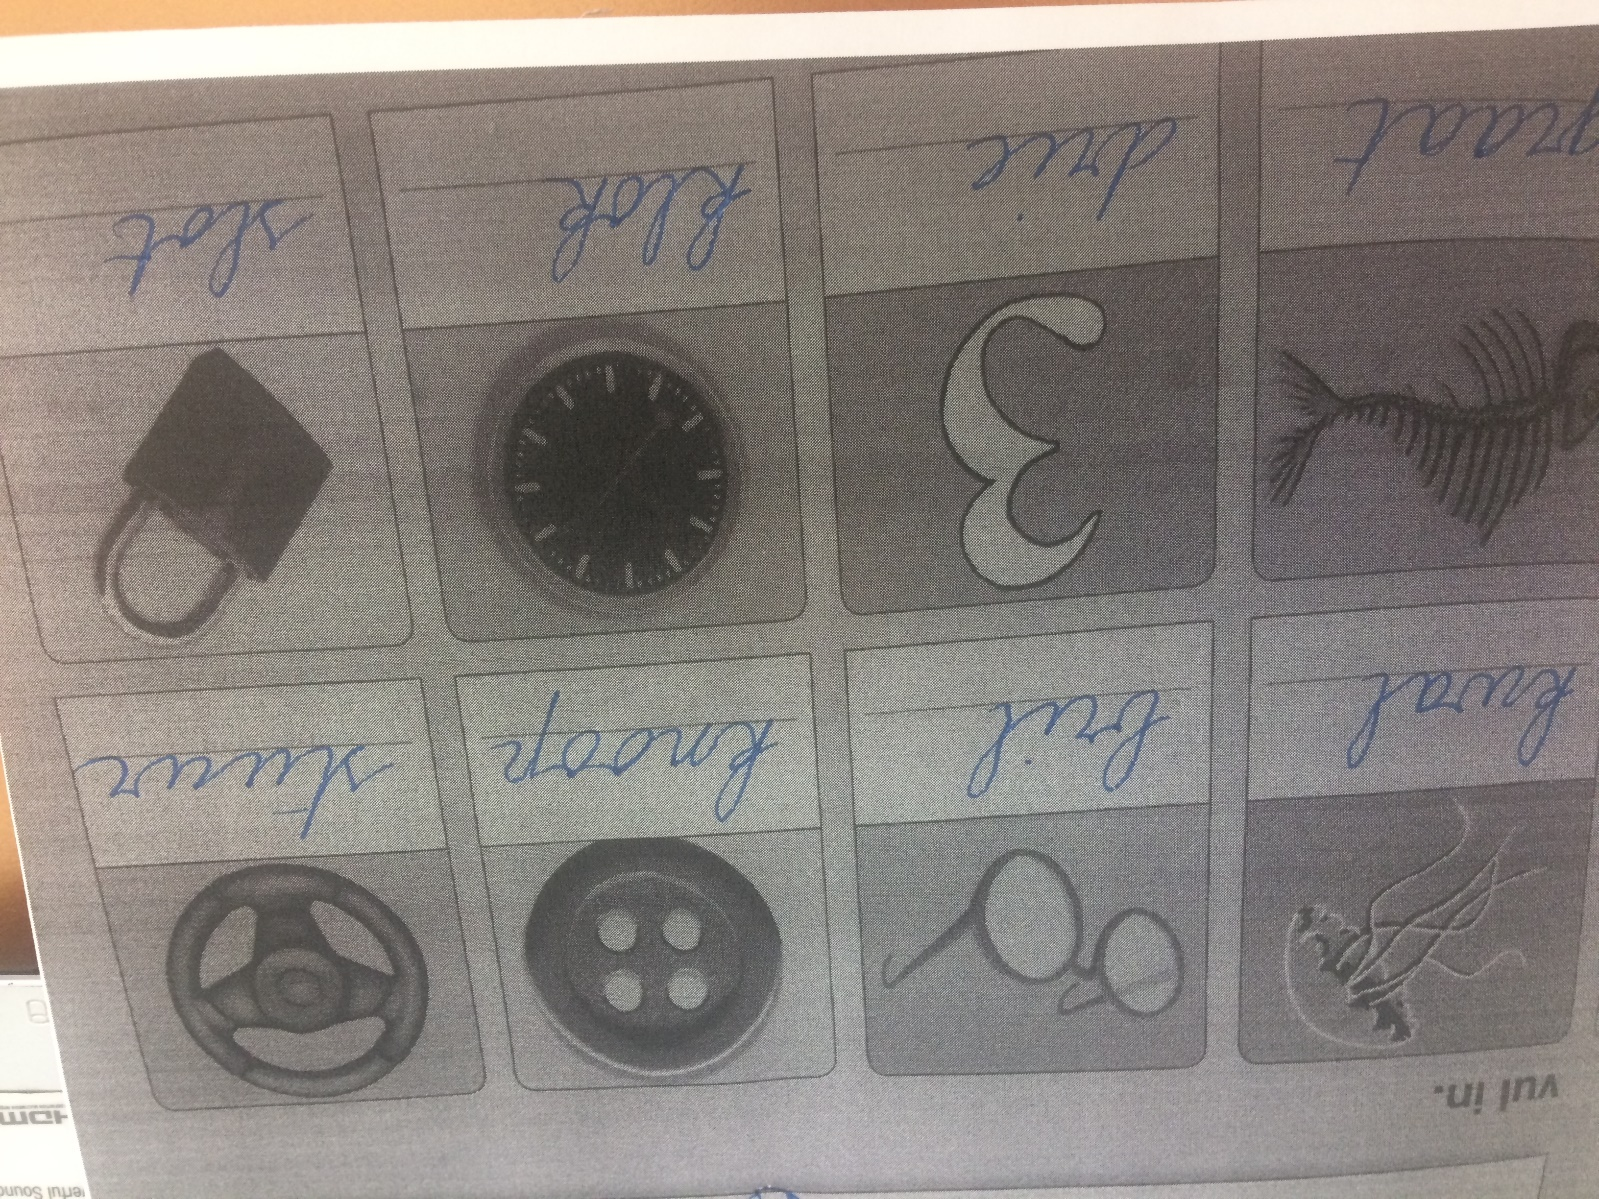 vul in.
kwal
bril
knoop
stuur
graat
drie
klok
slot